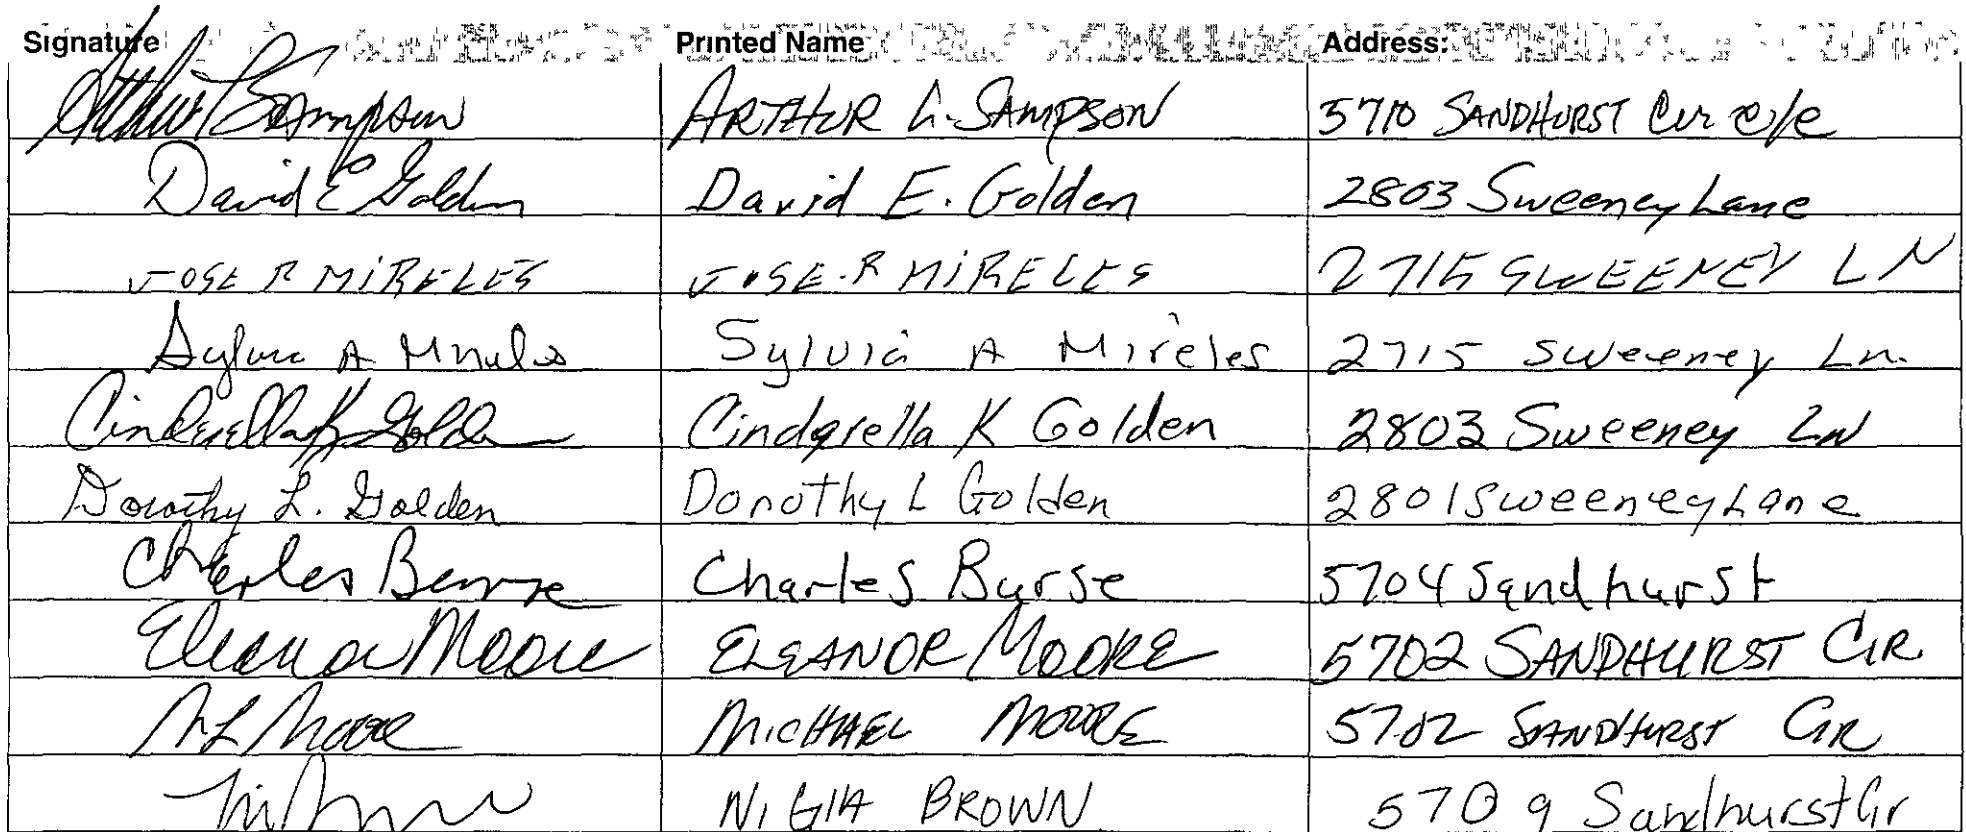 Signature Printed Name Address:
Arthur Sampson ARTHUR G. SAMPSON 5710 SANDHURST Circle
David E Golden David E. Golden 2803 Sweeney Lane
JOSE R MIRELES JOSE.R MIRELES 2715 SWEENEY LN
Sylvia A Mireles Sylvia A Mireles 2715 Sweeney Ln.
Cinderella K Golden Cinderella K Golden 2803 Sweeney LN
Dorothy L. Golden Dorothy L Golden 2801 Sweeney Lane
Charles Burse Charles Burse 5704 Sandhurst
Eleanor Moore ELEANOR MOORE 5702 SANDHURST CIR
ML Moore MICHAEL MOORE 5702 SANDHURST CIR
NIGIA BROWN 5709 Sandhurst Cir